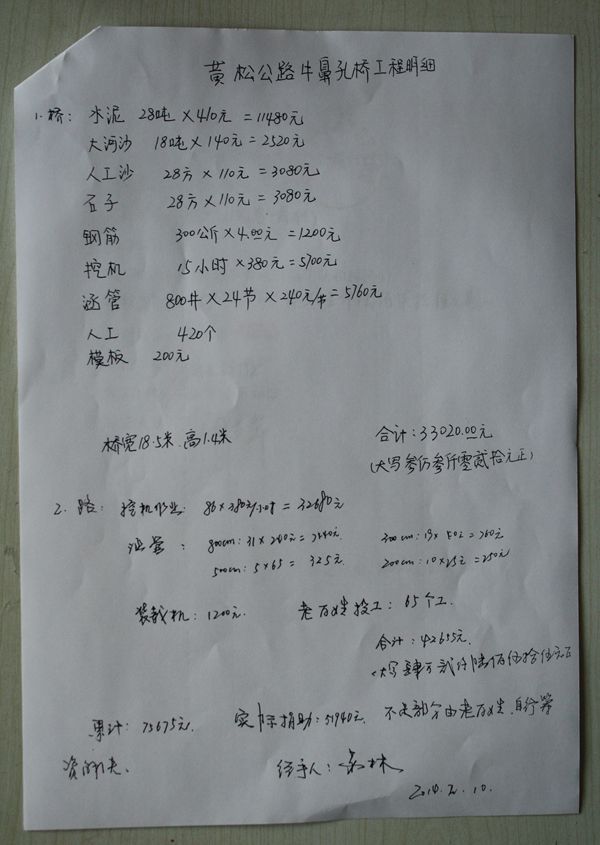 黄松公路牛鼻孔桥工程明细
1.桥: 水泥 28吨×410元=11480元
大河沙 18吨×140元=2520元
人工沙 28方×110元=3080元
石子 28方×110元=3080元
钢筋 300公斤×4.00元=1200元
挖机 15小时×380元=5700元
涵管 800# ×24节×240元/节=5760元
人工 420个
模板 200元
桥宽18.5米、高1.4米 合计:33020.00元
(大写参万参仟零贰拾元正)
2.路: 挖机作业: 86×380元/小时=32680元
涵管: 800cm:31×240元=7440元 300cm:19×40元=760元
500cm:5×65=325元 200cm:10×25元=250元
装载机:1200元. 老百姓投工:65个工.
合计:42655元.
(大写肆万贰仟陆佰伍拾伍元正
累计:75675元. 实际捐助:51940元. 不足部分由老百姓自行筹
资解决. 经手人: 林
2014.2.10.